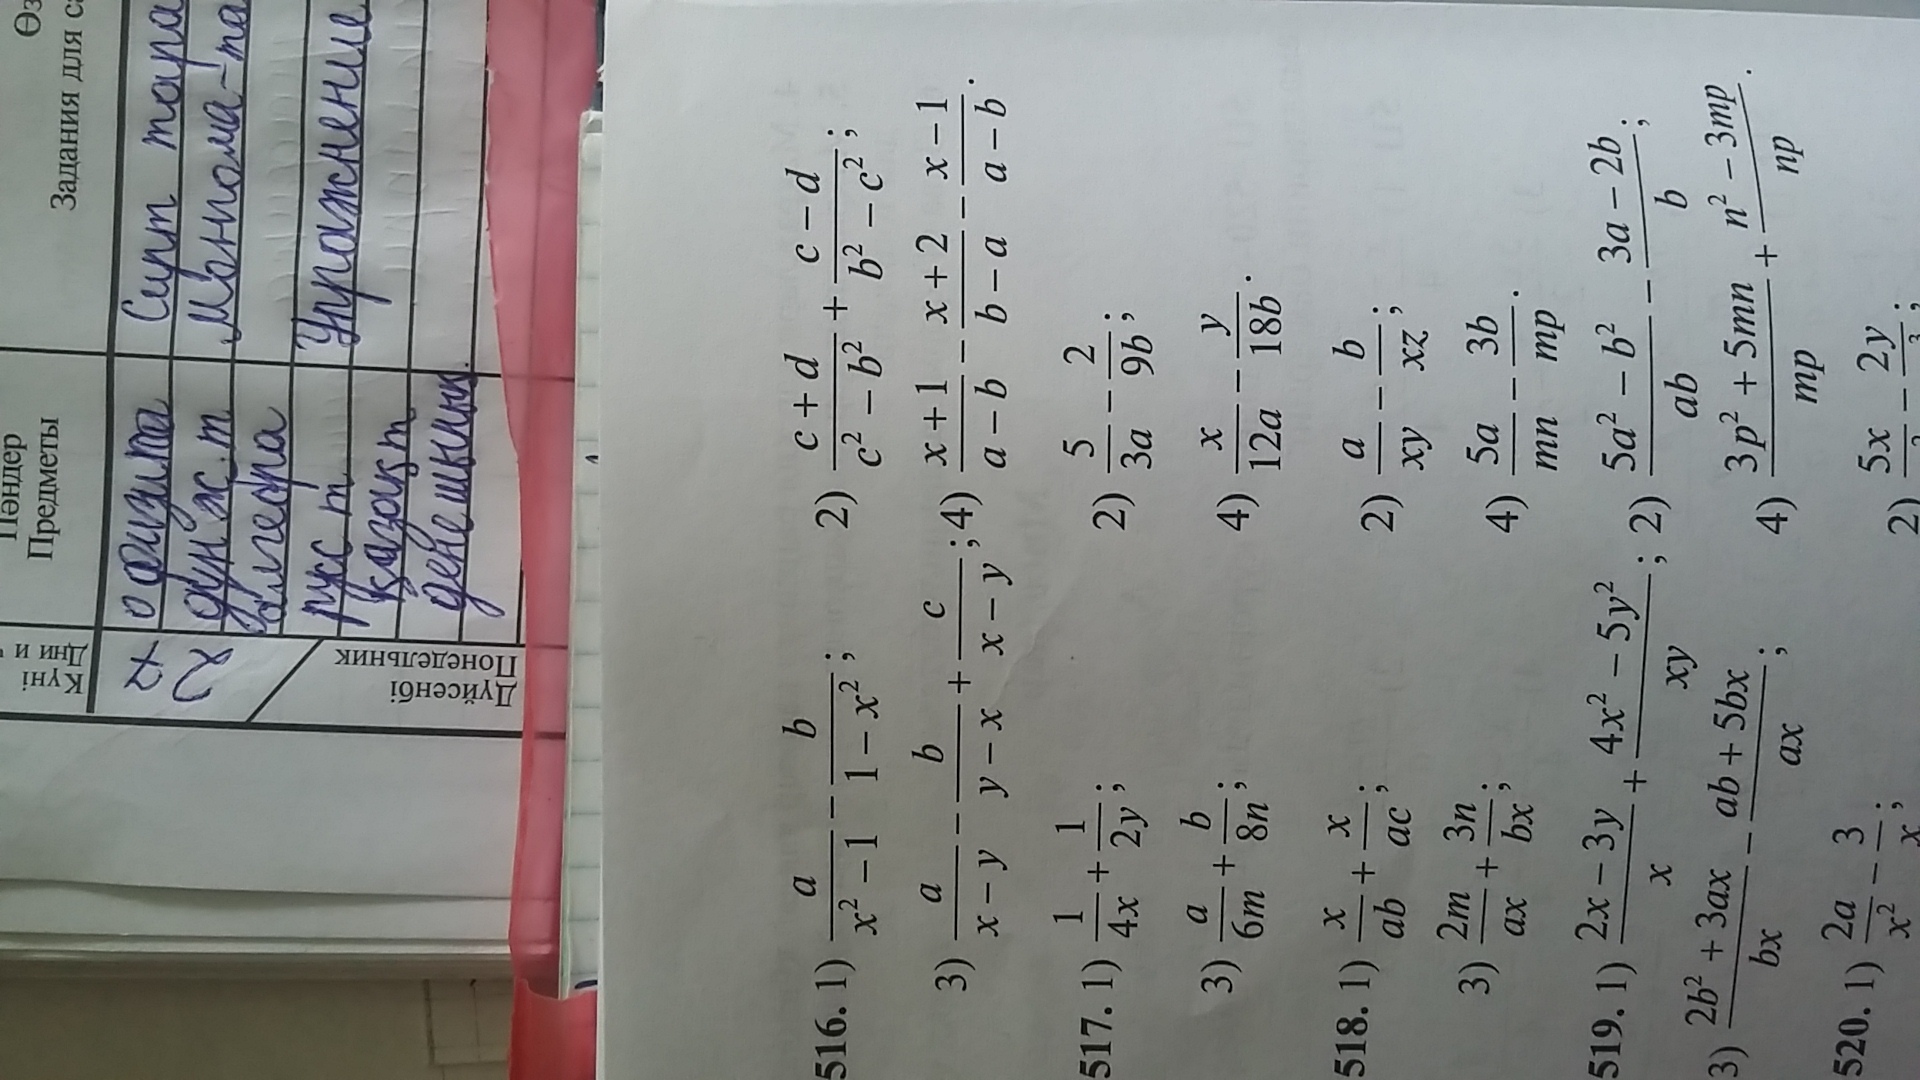 Пәндер
Предметы
Задания для
Күні
Дни и
Дүйсенбі
Понедельник
физика
Сипп
дүн.ж.т
алгебра
рус т
Упражнение
қазақ т
516. 1) a/(x² − 1) − b/(1 − x²);
2) (c + d)/(c² − b²) + (c − d)/(b² − c²);
3) a/(x − y) − b/(y − x) + c/(x − y);
4) (x + 1)/(a − b) − (x + 2)/(b − a) − (x − 1)/(a − b).
517. 1) 1/(4x) + 1/(2y);
2) 5/(3a) − 2/(9b);
3) a/(6m) + b/(8n);
4) x/(12a) − y/(18b).
518. 1) x/(ab) + x/(ac);
2) a/(xy) − b/(xz);
3) 2m/(ax) + 3n/(bx);
4) 5a/(mn) − 3b/(mp).
519. 1) (2x − 3y)/x + (4x² − 5y²)/(xy);
2) (5a² − b²)/(ab) − (3a − 2b)/b;
3) (2b² + 3ax)/(bx) − (ab + 5bx)/(ax);
4) (3p² + 5mn)/(mp) + (n² − 3mp)/(np).
520. 1) 2a/x² − 3/x;
2) 5x − 2y;